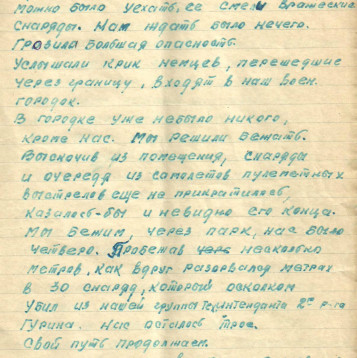 можно было уехать, её смели вражеские
снаряды. Нам ждать было нечего.
Грозила большая опасность.
Услышали крик немцев, перешедшие
через границу, входят в наш воен.
городок.
В городке уже небыло никого,
кроме нас. Мы решили бежать.
Выскочив из помещения, снаряды
и очереди из самолетов пулеметных
выстрелов еще не прикратилось,
казалось-бы и невидно его конца.
Мы бежим, через парк, нас было
четверо. Пробежав несколько
метров, как вдруг разорвался метрах
в 30 снаряд, который осколком
убил из нашей группы техинтенданта 2го р-га
Гурина. Нас осталось трое.
Свой путь продолжаем.